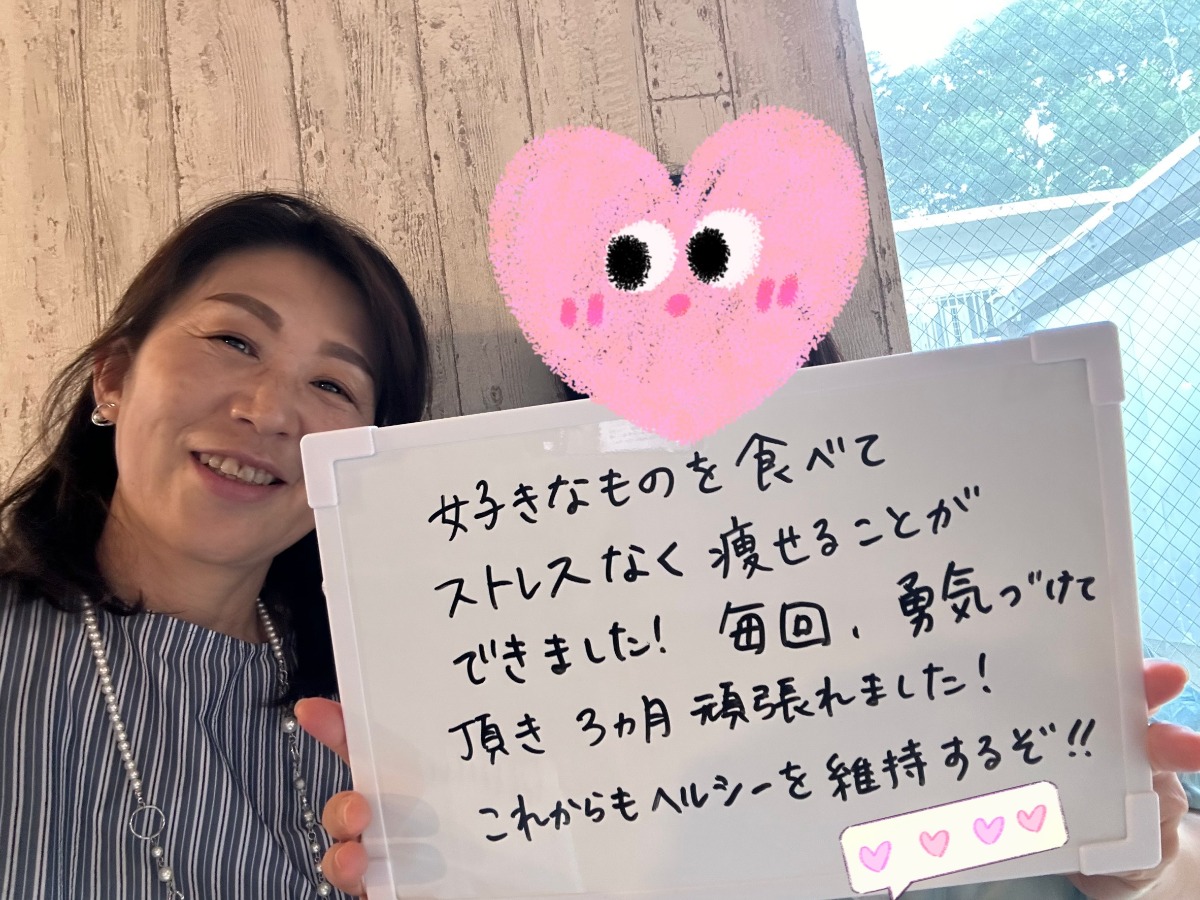 好きなものを食べて
ストレスなく痩せることが
できました! 毎回、勇気づけて
頂き 3ヵ月頑張れました!
これからもヘルシーを維持するぞ!!